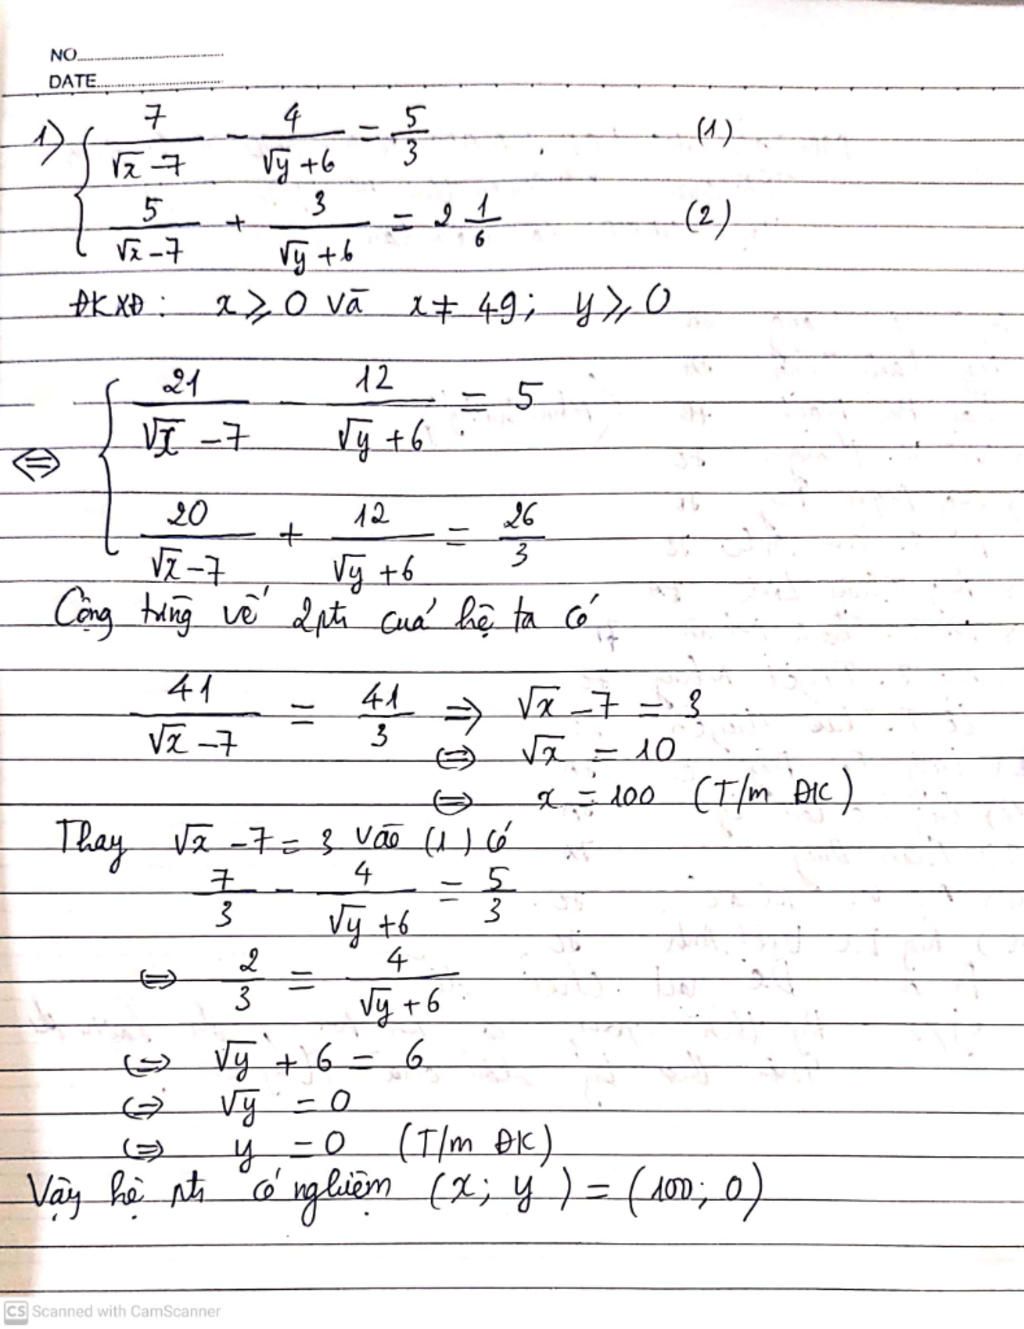 NO.
DATE.
1) { 7/(√x - 7) - 4/(√y + 6) = 5/3 (1)
5/(√x - 7) + 3/(√y + 6) = 2 1/6 (2)
ĐKXĐ: x ≥ 0 và x ≠ 49; y ≥ 0
⇔ { 21/(√x - 7) - 12/(√y + 6) = 5
20/(√x - 7) + 12/(√y + 6) = 26/3
Cộng từng vế 2pt của hệ ta có
41/(√x - 7) = 41/3 ⇒ √x - 7 = 3
⇔ √x = 10
⇔ x = 100 (T/m ĐK)
Thay √x - 7 = 3 vào (1) có
7/3 - 4/(√y + 6) = 5/3
⇔ 2/3 = 4/(√y + 6)
⇔ √y + 6 = 6
⇔ √y = 0
⇔ y = 0 (T/m ĐK)
Vậy hệ pt có nghiệm (x; y) = (100; 0)
CS Scanned with CamScanner